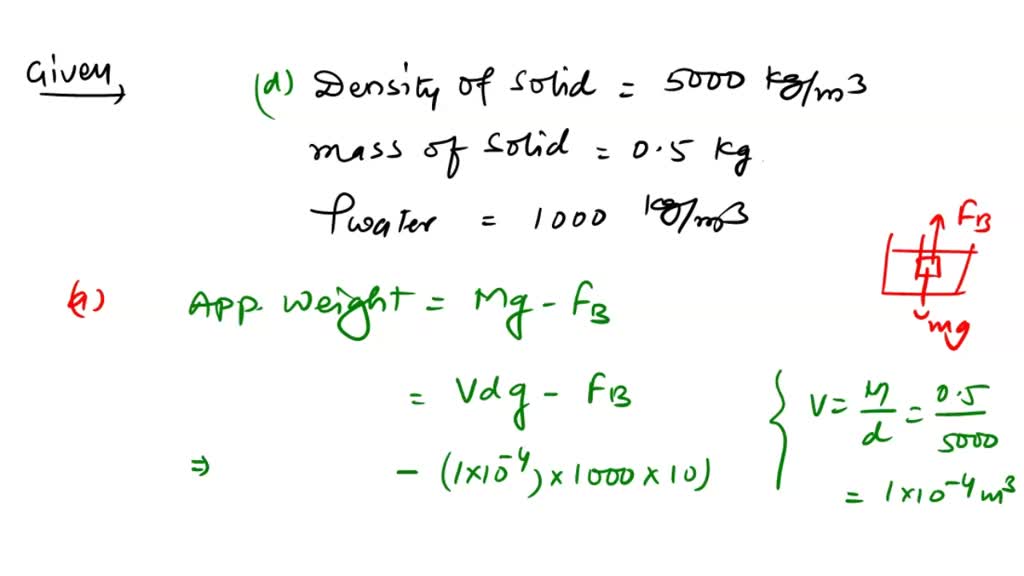 Given,
(d) Density of solid = 5000 kg/m3
mass of solid = 0.5 kg
ρwater = 1000 kg/m3
FB
mg
(a) App. weight = Mg - FB
= Vdg - FB
V = M/d = 0.5/5000
⇒ - (1×10⁻⁴) × 1000 × 10)
= 1×10⁻⁴ m³